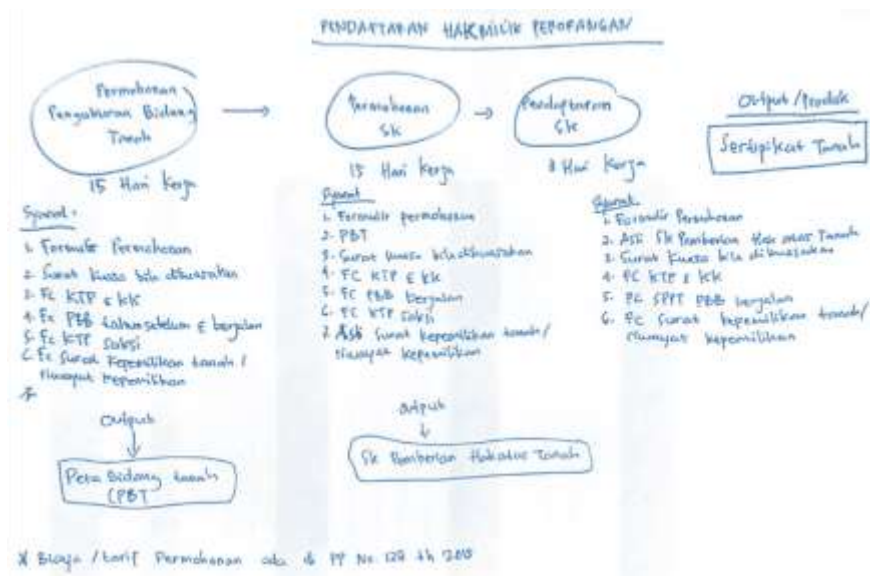 PENDAFTARAN HAK MILIK PERORANGAN
Permohonan
Pengukuran Bidang
Tanah
15 Hari Kerja
Syarat:
1. Formulir Permohonan
2. Surat Kuasa bila dikuasakan
3. Fc KTP & KK
4. Fc PBB tahun sebelum & berjalan
5. Fc KTP Saksi
6. Fc Surat Kepemilikan tanah /
riwayat kepemilikan
Output
Peta Bidang tanah
(PBT
Permohonan
SK
15 Hari Kerja
Syarat
1. Formulir permohonan
2. PBT
3. Surat kuasa bila dikuasakan
4. FC KTP & KK
5. FC PBB berjalan
6. FC KTP Saksi
7. Asli Surat kepemilikan tanah /
riwayat kepemilikan
output
SK Pemberian Hak atas Tanah
Pendaftaran
SK
Hari Kerja
Output / Produk
Sertipikat Tanah
Syarat
1. Formulir Permohonan
2. Asli SK Pemberian Hak atas Tanah
3. Surat Kuasa bila dikuasakan
4. FC KTP & KK
5. FC SPPT PBB berjalan
6. FC Surat kepemilikan tanah /
riwayat kepemilikan
* Biaya / tarif Permohonan ada di PP No. 128 th